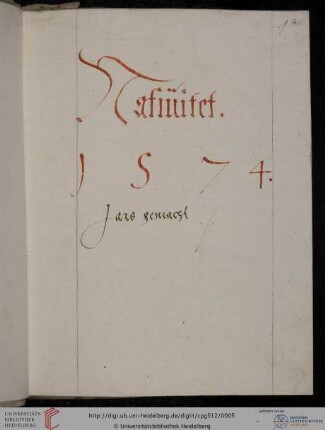 Natiuitet.
1 5 7 4.
Jars gemacht
UNIVERSITÄTS-
BIBLIOTHEK
HEIDELBERG
http://digi.ub.uni-heidelberg.de/diglit/cpg512/0005
© Universitätsbibliothek Heidelberg